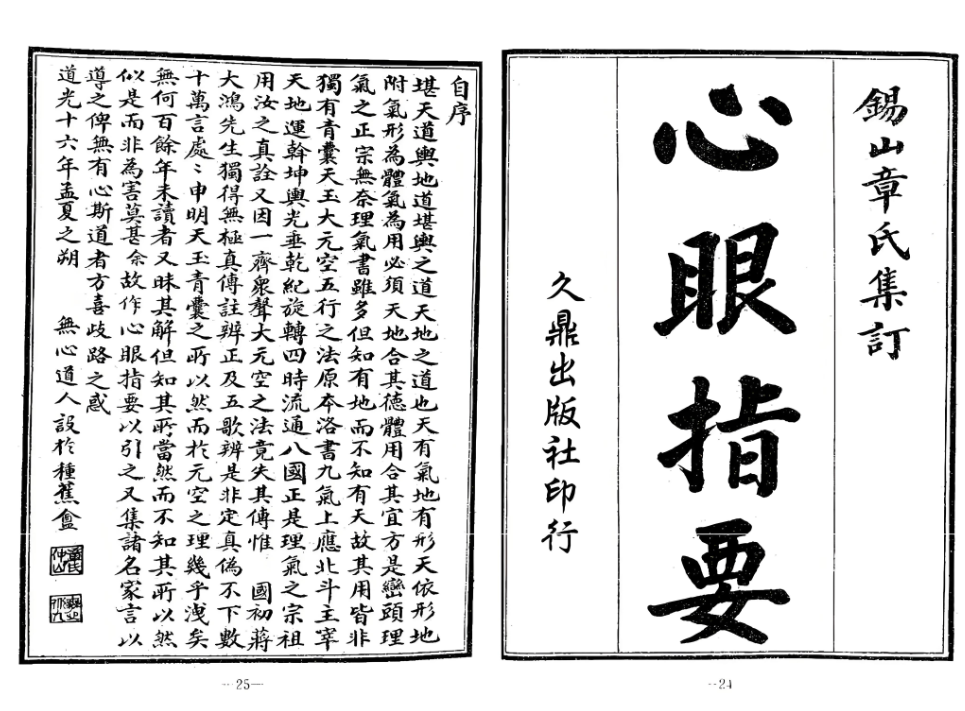 錫山章氏集訂
心眼指要
久鼎出版社印行
24
自序
堪天道輿地道堪輿之道天地之道也天有氣地有形天依形地
附氣形為體氣為用必須天地合其德體用合其宜方是巒頭理
氣之正宗無奈理氣書雖多但知有地而不知有天故其用皆非
獨有青囊天玉大元空五行之法原本洛書九氣上應北斗主宰
天地運斡坤輿光垂乾紀旋轉四時流通八國正是理氣之宗祖
用汝之真詮又因一齊眾聲大元空之法竟失其傳惟 國初蔣
大鴻先生獨得無極真傳註辨正及五歌辨是非定真偽不下數
十萬言處〻申明天玉青囊之所以然而於元空之理幾乎洩矣
無何百餘年來讀者又昧其解但知其所當然而不知其所以然
似是而非為害莫甚余故作心眼指要以引之又集諸名家言以
導之俾無有心斯道者方喜歧路之惑
道光十六年孟夏之朔 無心道人設於種蕉盦
章氏仲山
25